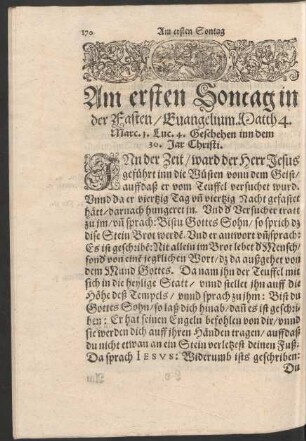 170 Am ersten Sontag
Am ersten Sontag in
der Fasten/Euangelium. Matth 4.
Marc. 1. Luc. 4. Geschehen inn dem
30. Jar Christi.
INn der Zeit/ ward der Herr Jesus
geführt inn die Wüsten vonn dem Geist/
auffdaß er vom Teuffel versucht wurd.
Vnnd da er viertzig Tag vñ viertzig Nacht gefastet
hätt/ darnach hungeret in. Vnd d' Versucher tratt
zu jm/ vñ sprach: Bistu Gottes Sohn/ so sprich dz
dise Stein Brot werdē. Vnd er antwort vñ sprach:
Es ist geschribē: Nit allein im Brot lebet d' Mensch/
sond' von eine jeglichen Wort/ dz da außgehet von
dem Mund Gottes. Da nam jhn der Teuffel mit
sich in die heylige Statt/ vnnd stellet jhn auff die
Höhe deß Tempels/ vnnd sprach zu jhm: Bist du
Gottes Sohn/ so laß dich hinab/ dañ es ist geschri-
ben: Er hat seinen Engeln befohlen von dir/ vnnd
sie werden dich auff jhren Händen tragen/ auffdaß
du nicht etwan an ein Stein verletzest deinen Fuß.
Da sprach IESVS: Widerumb ists geschriben:
Du